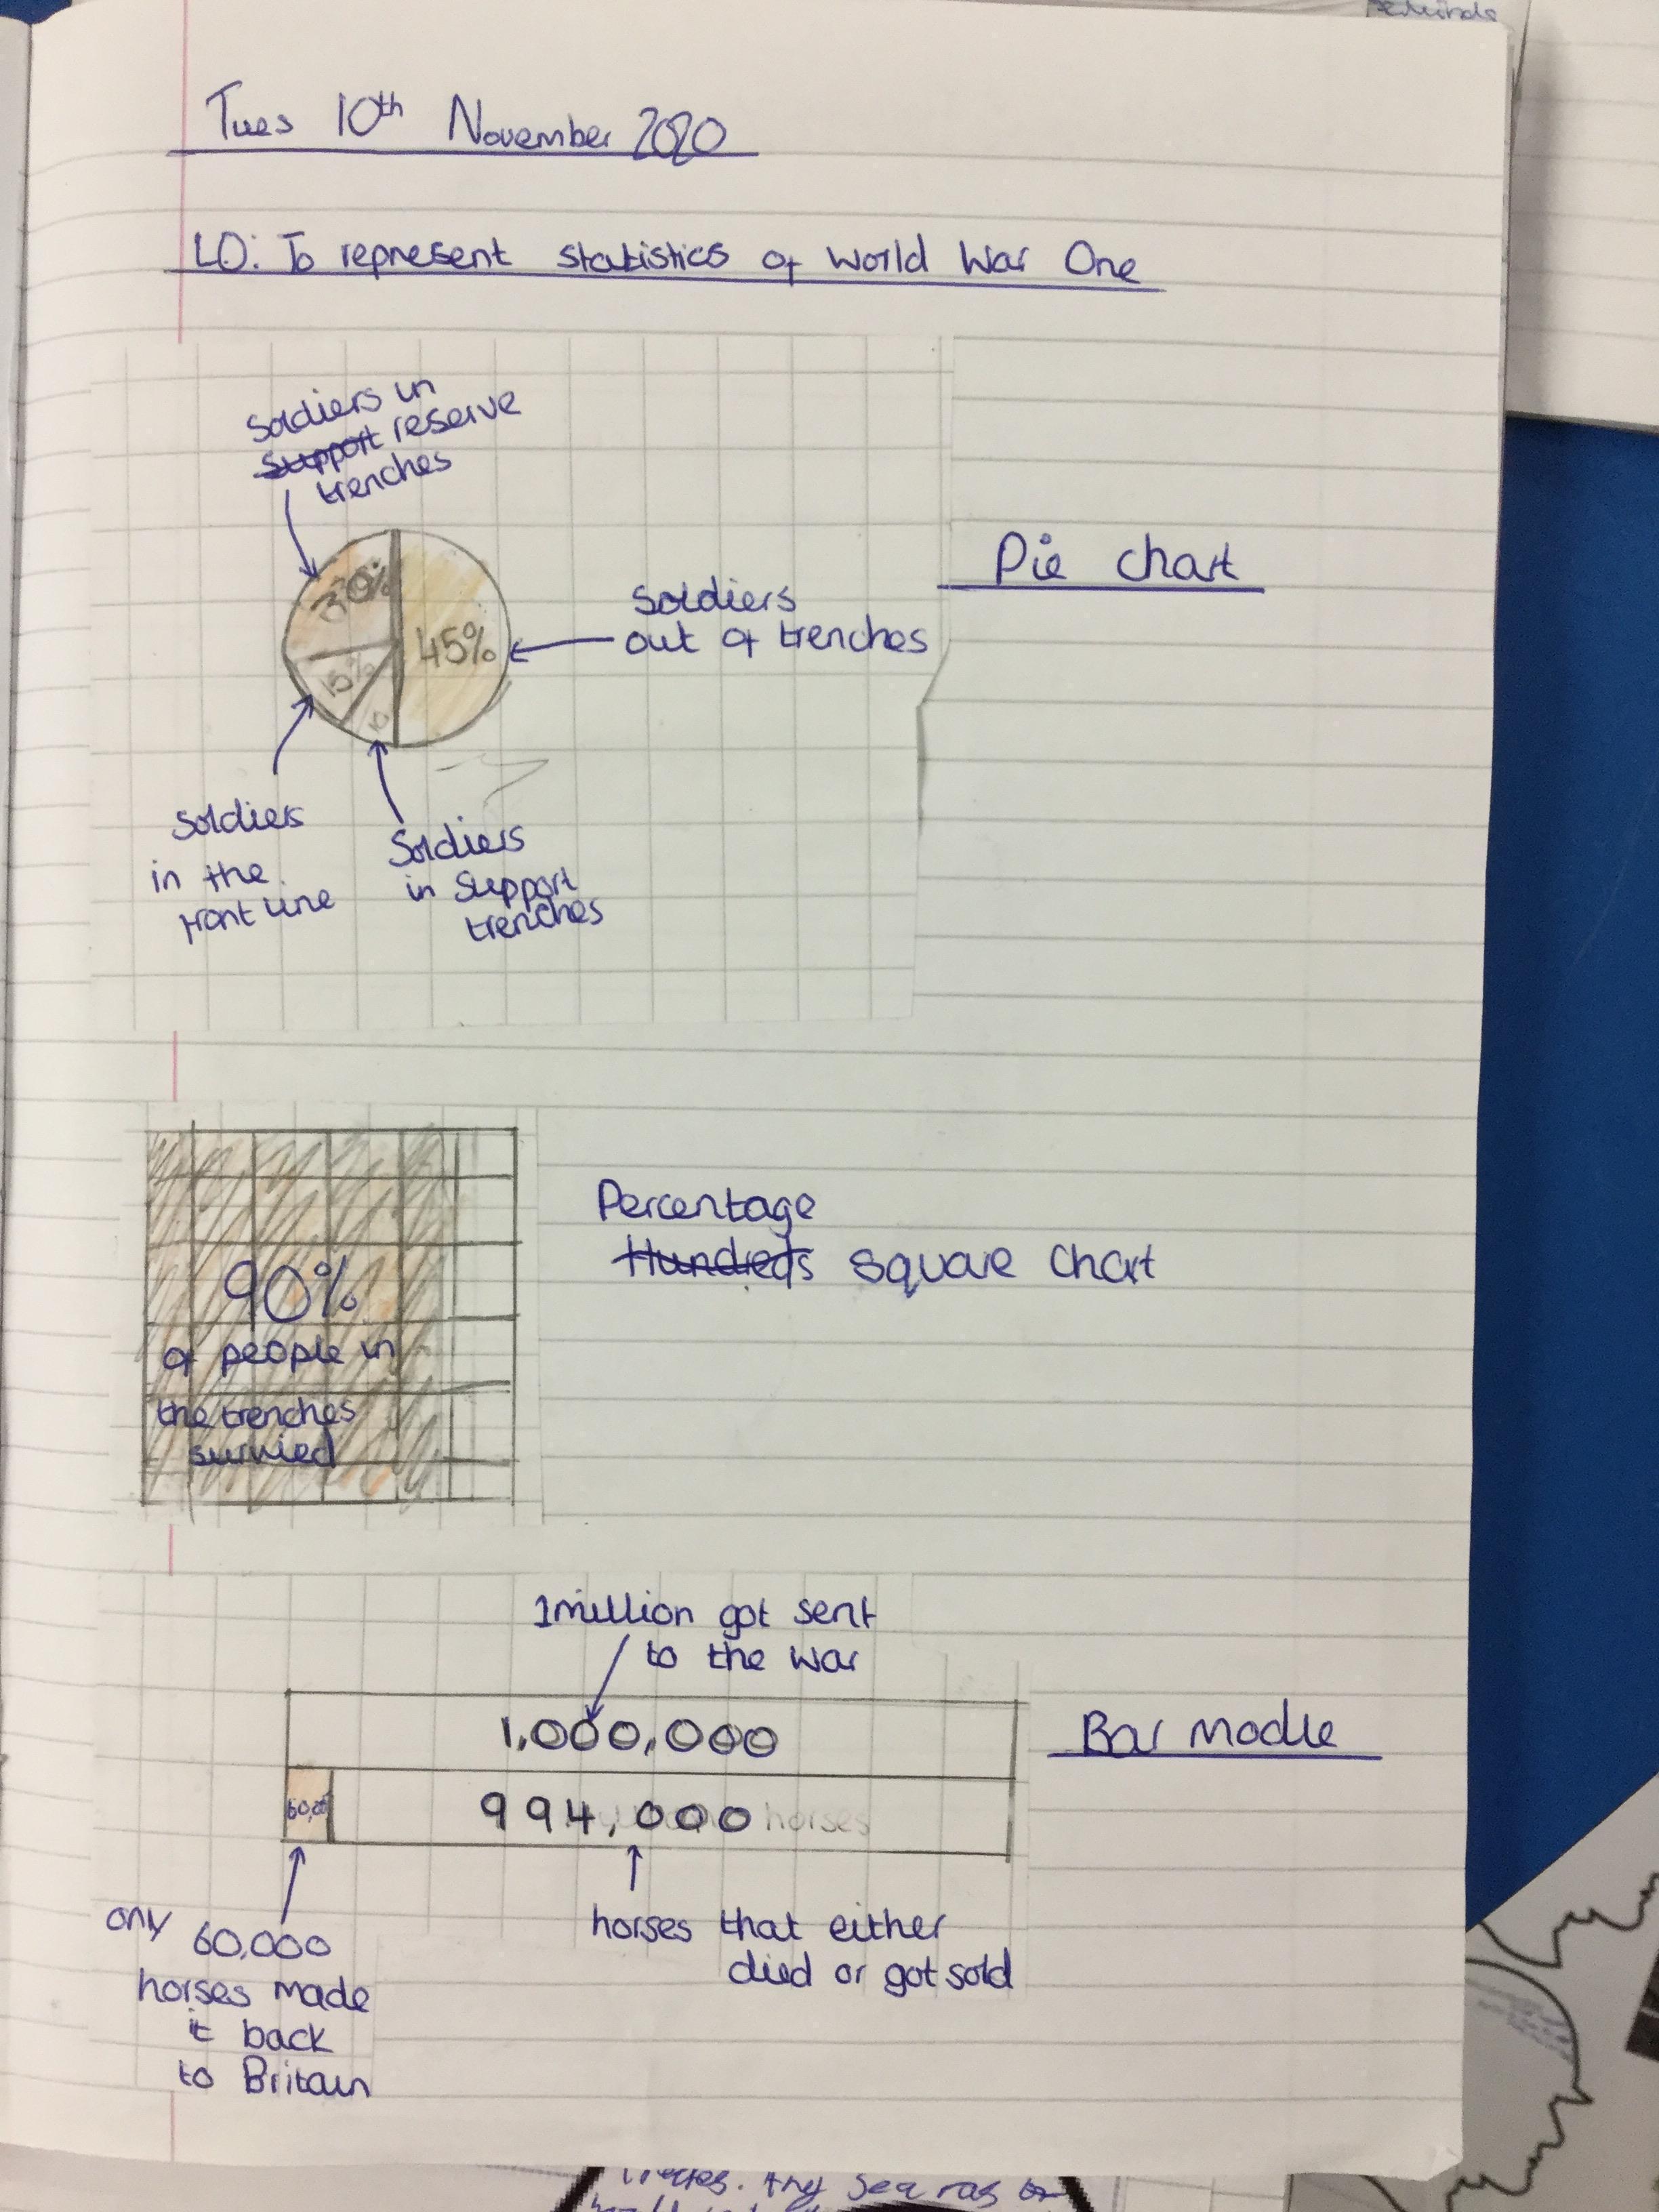 Tues 10th November 2020
LO: To represent statistics of World War One
Soldiers in
support reserve
trenches
30%
45%
15%
10
Soldiers
out of trenches
Pie chart
Soldiers
in the
front line
Soldiers
in support
trenches
90%
of people in
the trenches
survied
Percentage
Hundreds square chart
1 million got sent
to the war
1,000,000
Bar modle
60,00
994,000
horses
only 60,000
horses made
it back
to Britain
horses that either
died or got sold